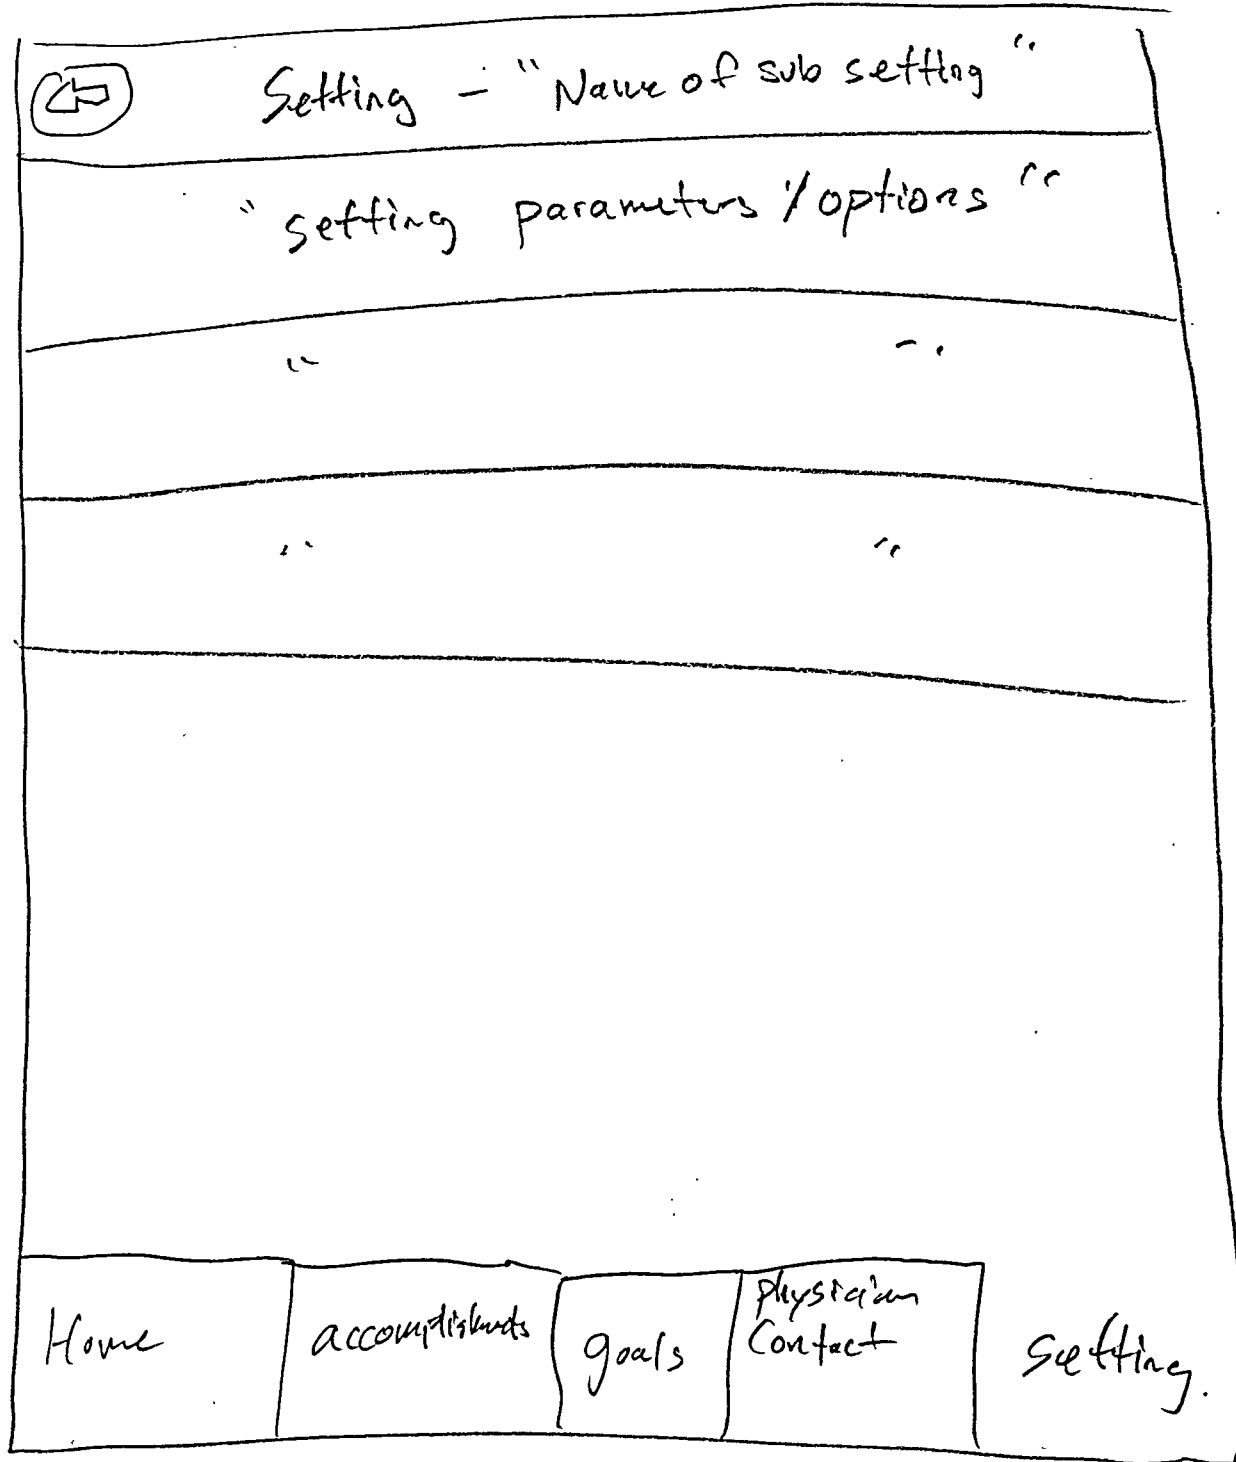 Setting - "Name of sub setting"
"setting parameters / options"
" "
" "
Home
accomplishments
goals
physician
Contact
Setting.